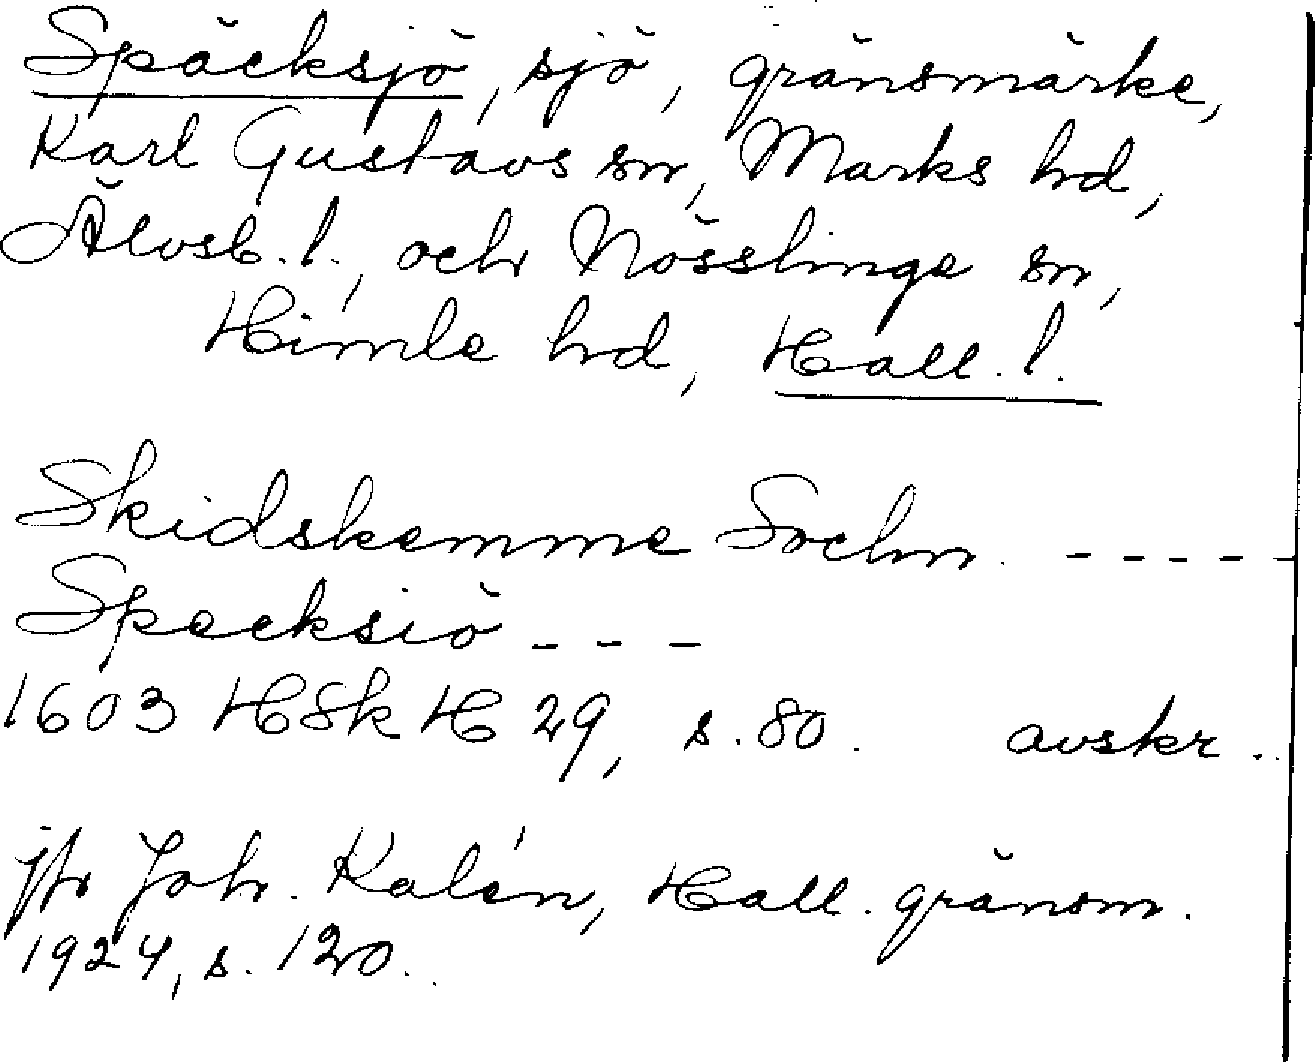 Späcksjö, sjö, gränsmärke,
Karl Gustavs sn, Marks hd,
Älvsb. l., och Nösslinge sn,
Himle hd, Hall. l.
Skidskemme Sochn. -----
Specksiö ---
1603 HSkH 29, s. 80. avskr.
jfr Joh. Kalén, Hall. gränsm.
1924, s. 120.